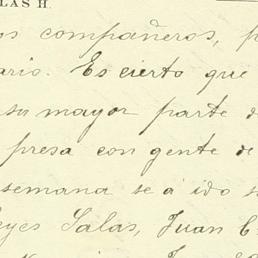 LAS H.
os compañeros, p
ario. Es cierto que
su mayor parte d
presa con gente de
semana se á ido s
eyes Salas, Juan C